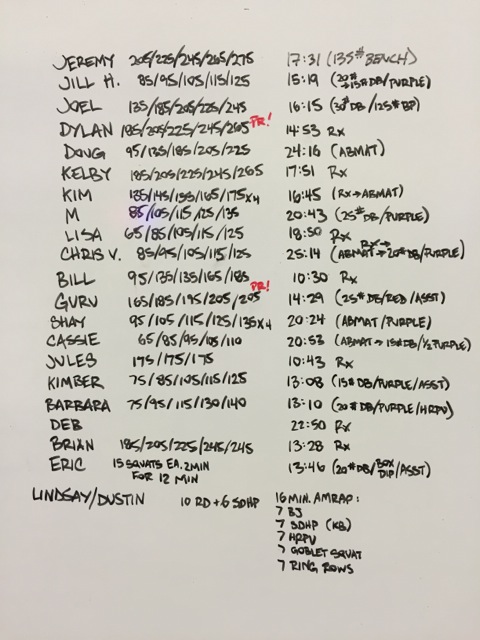 JEREMY 205/225/245/265/275 17:31 (135# BENCH)
JILL H. 85/95/105/115/125 15:19 (20# → 15# DB/PURPLE)
JOEL 135/185/205/225/245 16:15 (30# DB/125# BP)
DYLAN 185/205/225/245/265 PR! 14:53 Rx
DOUG 95/135/185/205/225 24:16 (ABMAT)
KELBY 185/205/225/245/265 17:51 Rx
KIM 135/145/155/165/175x4 16:45 (Rx→ABMAT)
M 85/105/115/125/135 20:43 (25# DB/PURPLE)
LISA 65/85/105/115/125 18:50 Rx
CHRIS V. 85/95/105/115/125 25:14 (Rx→ ABMAT→20# DB/PURPLE)
BILL 95/135/135/165/185 10:30 Rx
GURU 165/185/195/205/205 PR! 14:29 (25# DB/RED/ASST)
SHAY 95/105/115/125/135x4 20:24 (ABMAT/PURPLE)
CASSIE 65/85/95/105/110 20:53 (ABMAT→15# DB/½ PURPLE)
JULES 175/175/175 10:43 Rx
KIMBER 75/85/105/115/125 13:08 (15# DB/PURPLE/ASST)
BARBARA 75/95/115/130/140 13:10 (20# DB/PURPLE/HRPU)
DEB 22:50 Rx
BRIAN 185/205/225/245/245 13:28 Rx
ERIC 15 SQUATS EA. 2MIN FOR 12 MIN 13:46 (20# DB/BOX DIP/ASST)
LINDSAY/DUSTIN 10 RD + 6 SDHP 16 MIN. AMRAP:
7 BJ
7 SDHP (KB)
7 HRPU
7 GOBLET SQUAT
7 RING ROWS